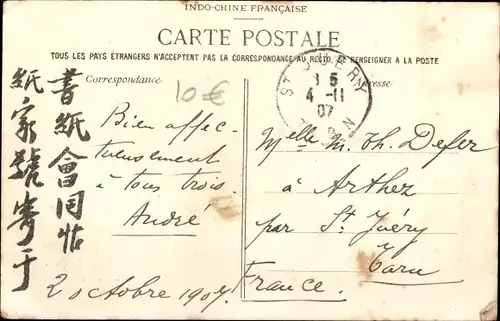 INDO-CHINE FRANÇAISE
CARTE POSTALE
TOUS LES PAYS ÉTRANGERS N'ACCEPTENT PAS LA CORRESPONDANCE AU RECTO, SE RENSEIGNER A LA POSTE
Correspondance
Adresse
10 €
ST JUERY
5
4 -11
07
TARN
書紙會同帖
紙家號寄于
Bien affec-
tueusement
à tous trois.
André
2 octobre 1907.
Melle M. Th. Defer
à Arthez
par St Juéry
Tarn
France.